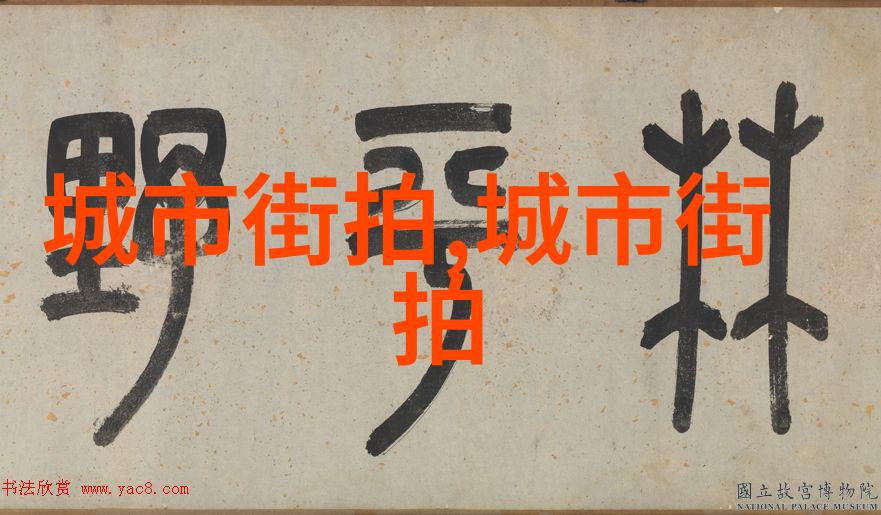 林平野
城市街拍,城市街
拍
书法欣赏 www.yac8.com
國立故宮博物院
NATIONAL PALACE MUSEUM